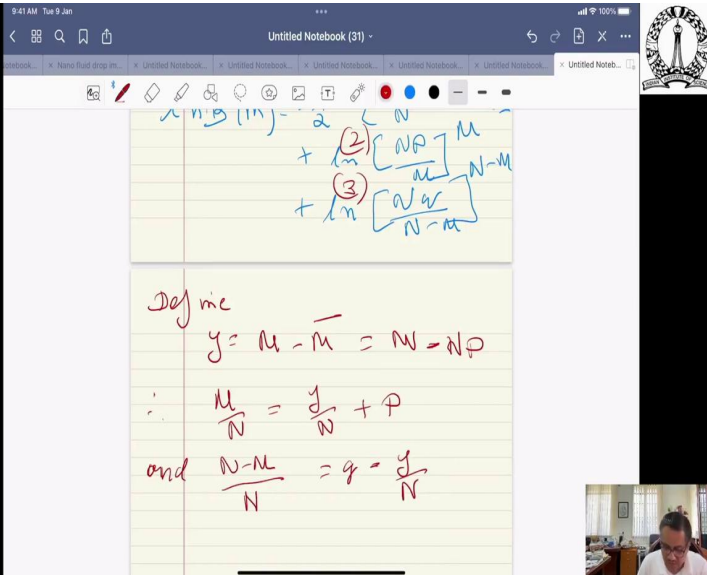 9:41 AM Tue 9 Jan
100%
Untitled Notebook (31)
Notebook... × Nano fluid drop im... × Untitled Notebook... × Untitled Notebook... × Untitled Notebook... × Untitled Notebook... × Untitled Notebook... × Untitled Noteb...
2 N
+ ln (2) [NP/M]^M
+ ln (3) [Nq/N-M]^N-M
Define
y = M - M̅ = M - NP
∴ M/N = y/N + P
and N-M/N = q - y/N